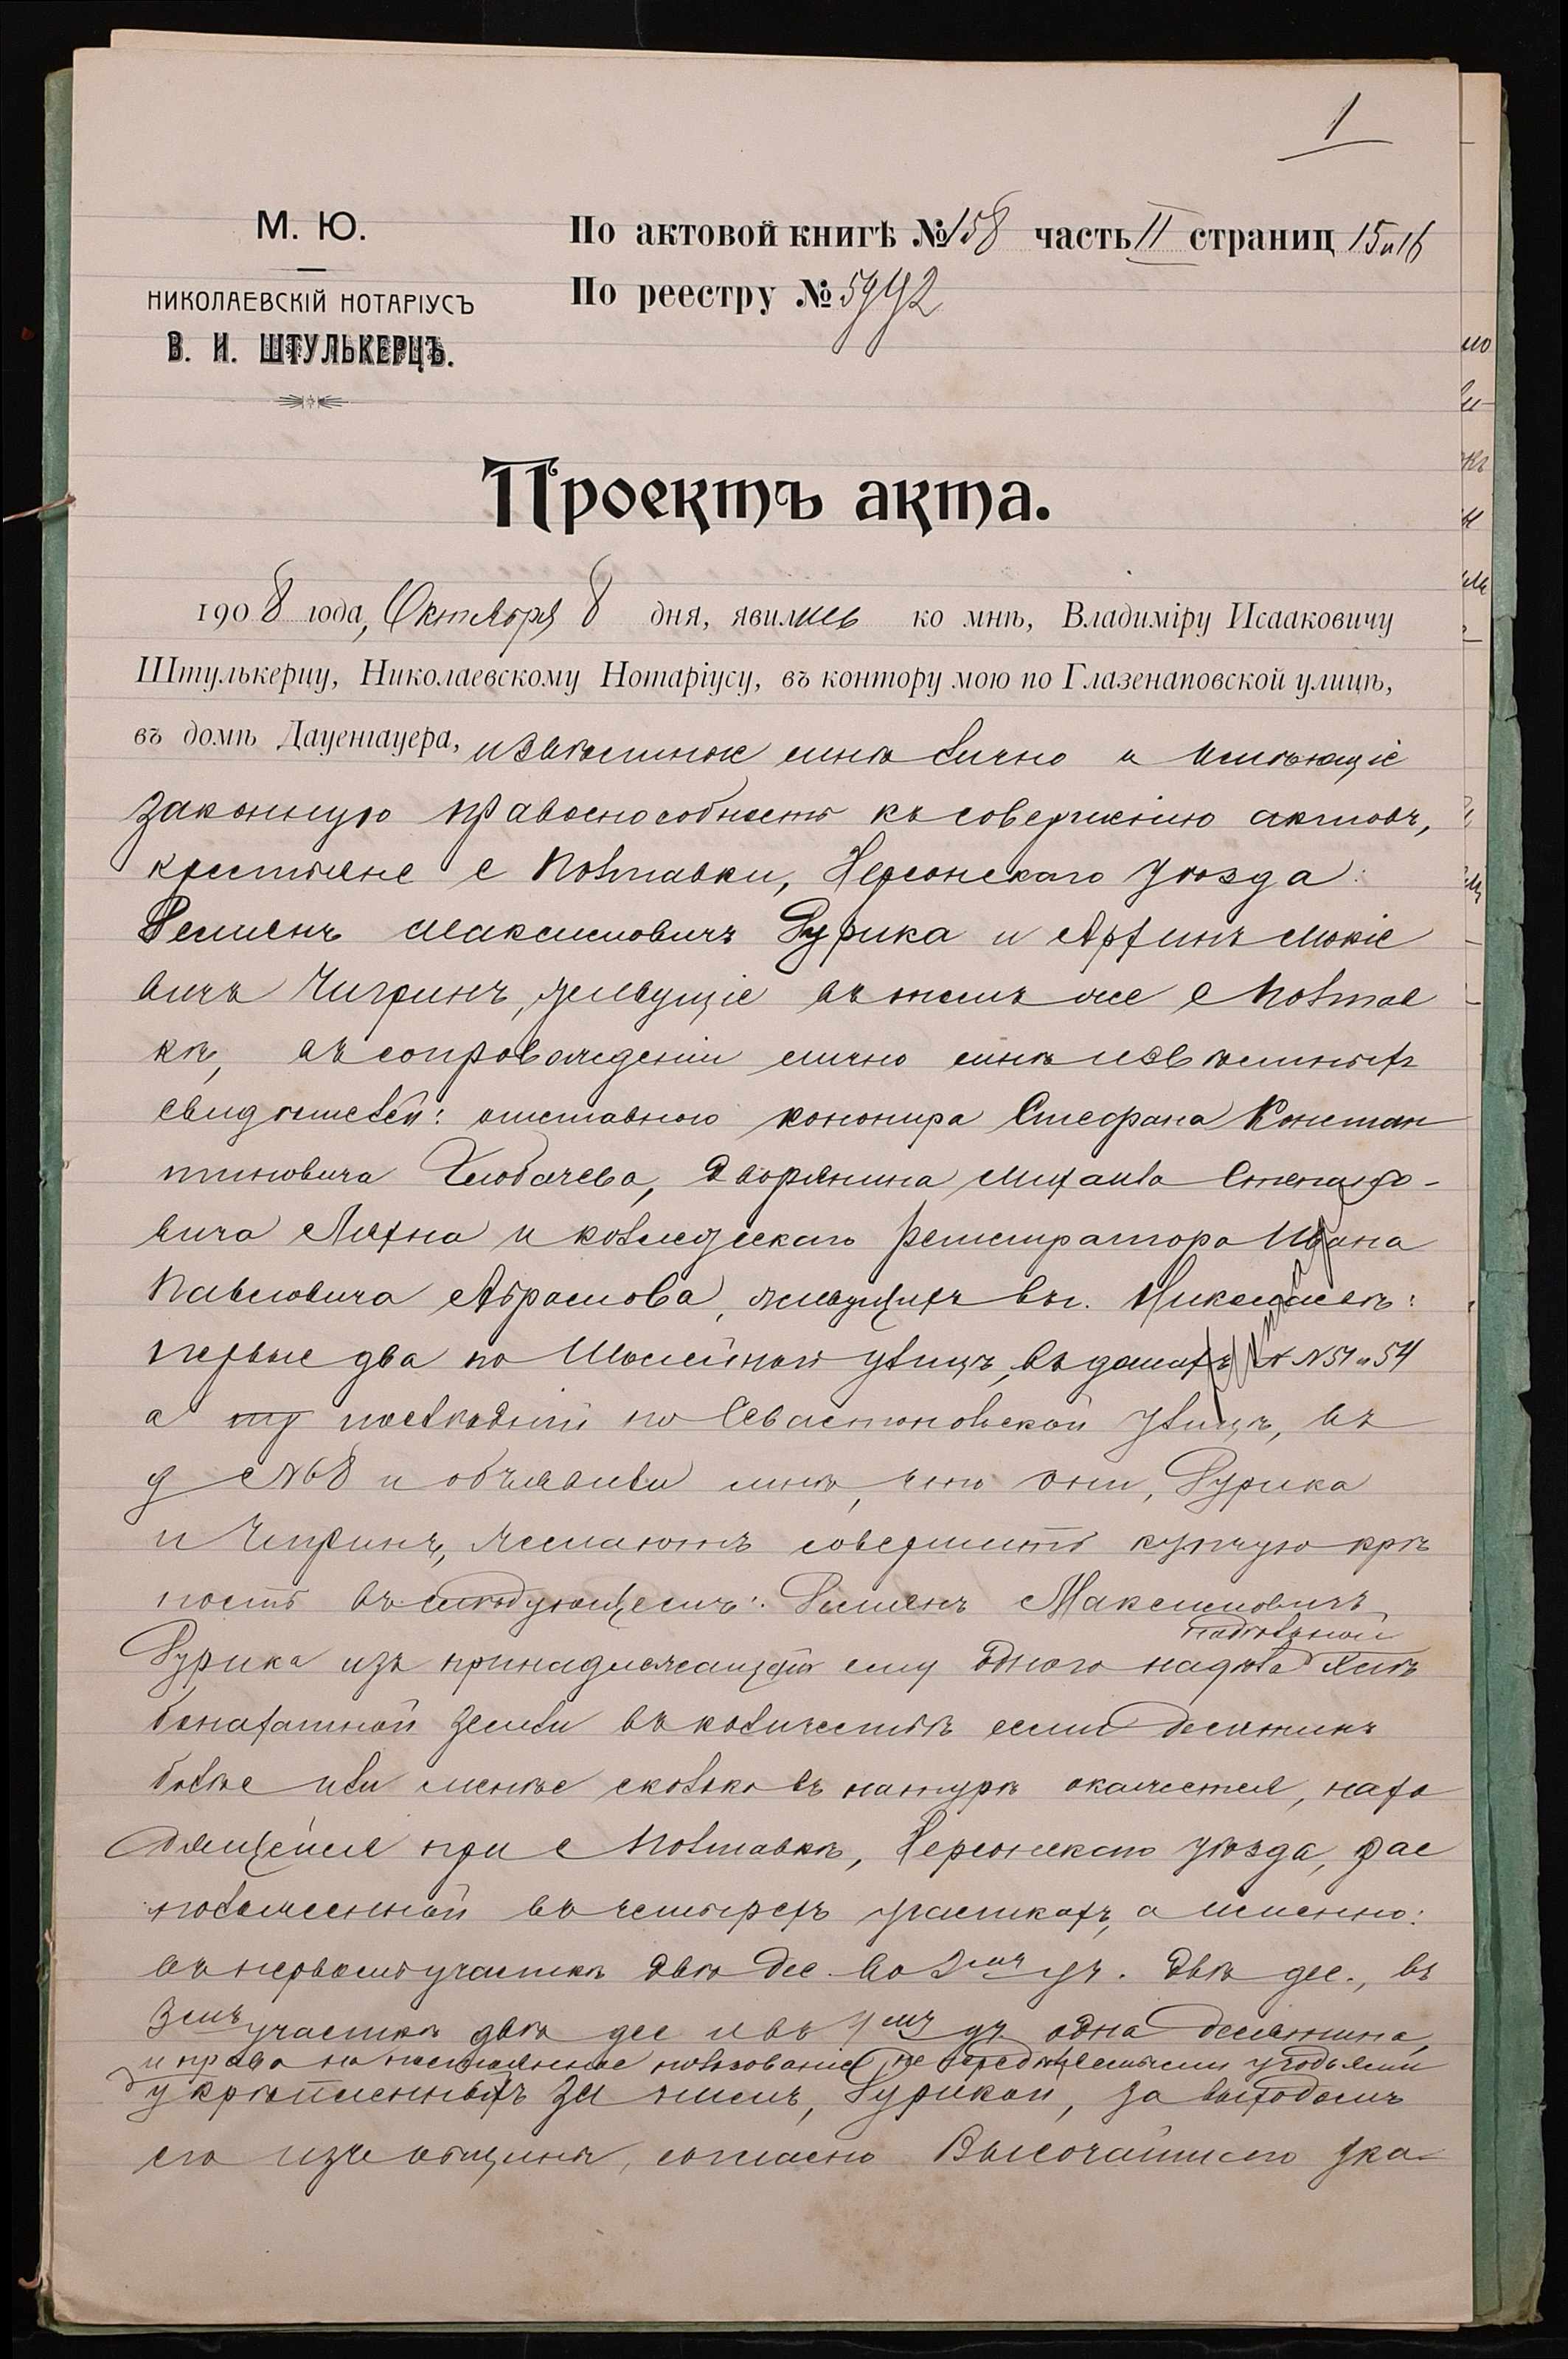 1
М. Ю.
НИКОЛАЕВСКІЙ НОТАРІУСЪ
В. И. ШТУЛЬКЕРЦЪ.
По актовой книгѣ № 158 часть II страниц 15 и 16
По реестру № 5992
Проектъ акта.
1908 года, Октября 8 дня, явились ко мнѣ, Владиміру Исааковичу
Штулькерцу, Николаевскому Нотаріусу, въ контору мою по Глазенаповской улицѣ,
въ домѣ Дауенгауера, извѣстные мнѣ лично и имѣющіе
законную правоспособность къ совершенію актовъ,
крестьяне с Полтавки, Херсонскаго уѣзда:
Семенъ Максимовичъ Гурика и Архипъ Мокіе
вичъ Чигринъ, живущіе въ томъ же с Полтав
кѣ, въ сопровожденіи лично мнѣ извѣстныхъ
свидѣтелей: отставного кононира Стефана Констан
тиновича Хлюбачева, дворянина Михаила
вича Ляхна и коллежскаго регистратора Ивана
Павловича Абрамова, живущихъ въ г. Николаевѣ:
первые два по Шоссейной улицѣ, въ домахъ № N 51 и 54
а послѣдній по Севастопольской улицѣ, въ
д № 68 и объявили мнѣ, что они, Гурика
и Чигринъ, желаютъ совершить купчую крѣ
пость въ слѣдующемъ: Семенъ Максимовичъ
надѣльной
Гурика изъ принадлежащей ему одного надѣла
бопахатной земли въ количествѣ семи десятинъ
болѣе или менѣе сколько въ натурѣ окажется, нахо
дящейся при с Полтавкѣ, Херсонскаго уѣзда, рас
положенной въ четырехъ участкахъ, а именно:
въ первомъ участкѣ двѣ дес. во 2мъ уч. двѣ дес., въ
3емъ участкѣ двѣ дес и въ 4мъ уч одна десятина,
и право на постоянное пользование угодьями
укрѣпленныхъ за нимъ, Гурикой, за выходомъ
его изъ общины, согласно Высочайшаго ука-